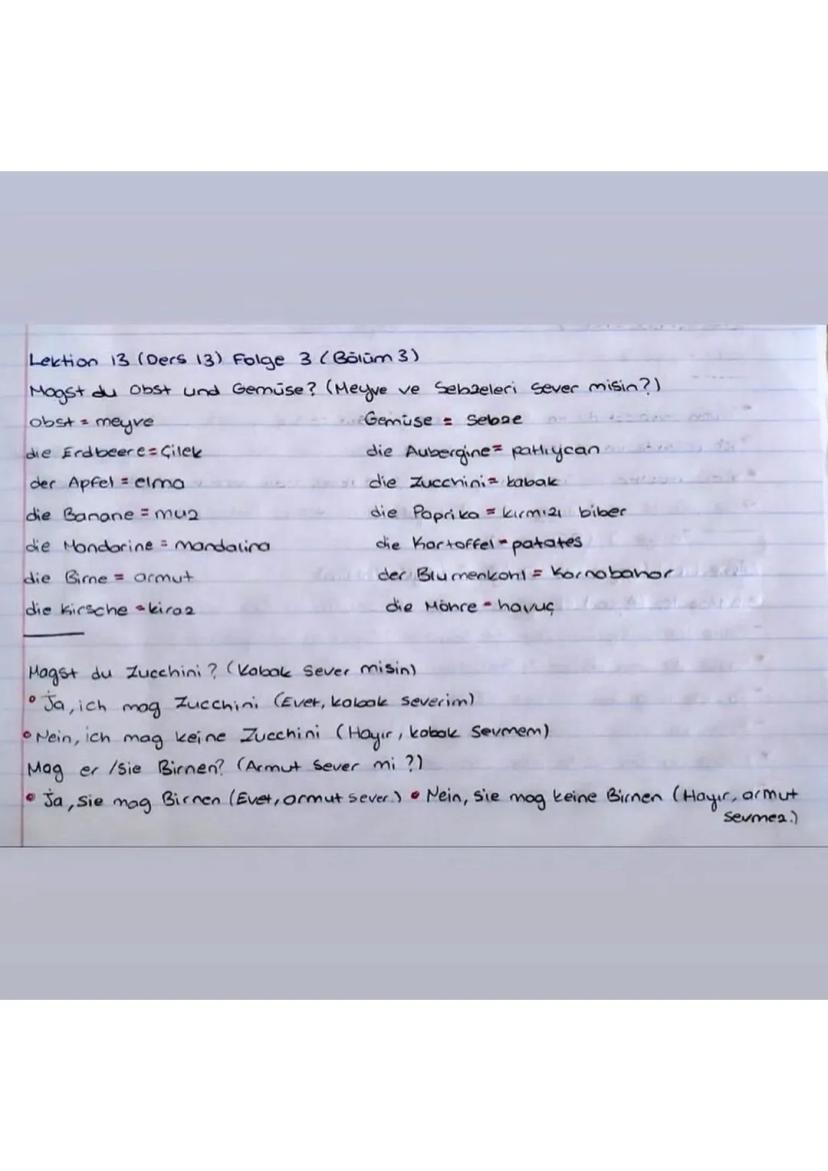 Lektion 13 (Ders 13) Folge 3 (Bölüm 3)
Magst du Obst und Gemüse? (Meyve ve Sebzeleri sever misin?)
Obst = meyve
Gemüse = Sebze
die Erdbeere = Çilek
die Aubergine = patlıycan
der Apfel = elma
die Zucchini = kabak
die Banane = muz
die Paprika = kırmızı biber
die Mandarine = mandalina
die Kartoffel = patates
die Birne = armut
der Blumenkohl = Karnabahar
die Kirsche = kiraz
die Möhre = havuç
Magst du Zucchini? (Kabak Sever misin)
• Ja, ich mag Zucchini (Evet, kabak severim)
• Nein, ich mag keine Zucchini (Hayır, kabak Sevmem)
Mag er /Sie Birnen? (Armut Sever mi?)
• Ja, Sie mag Birnen (Evet, armut sever.) • Nein, Sie mag keine Birnen (Hayır, armut
Sevmez.)